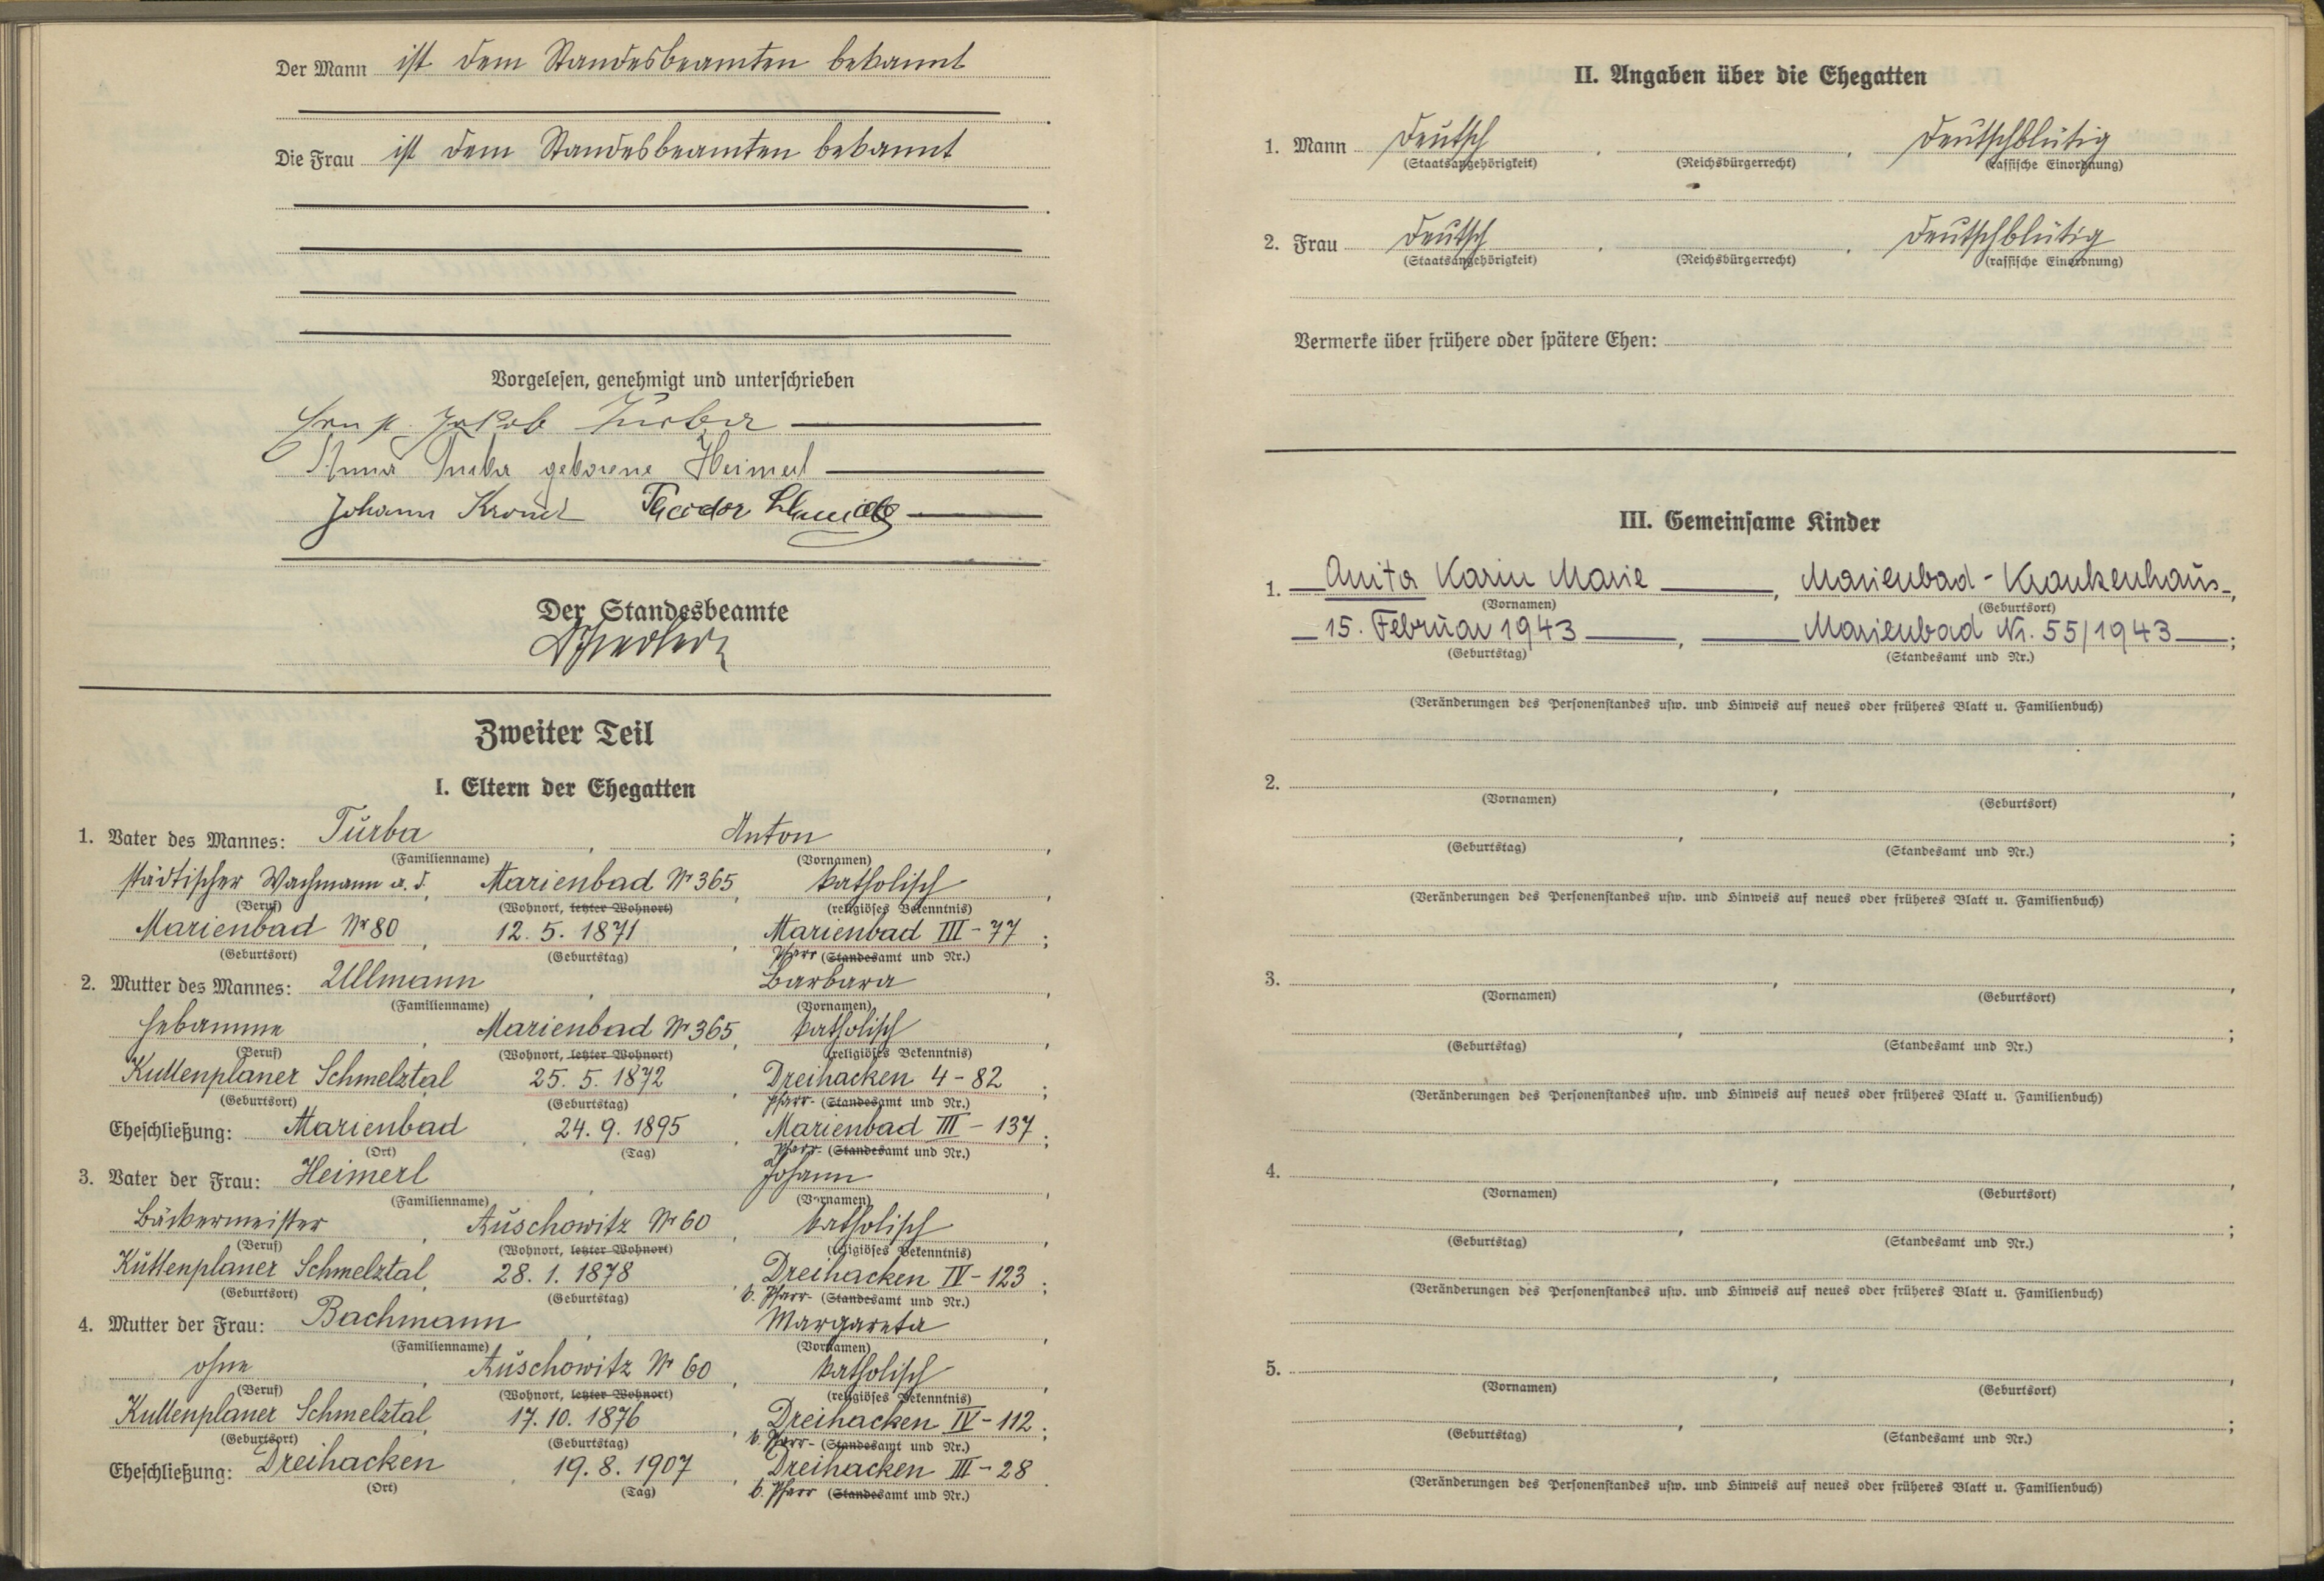 Der Mann ist dem Standesbeamten bekannt
Die Frau ist dem Standesbeamten bekannt
Vorgelesen, genehmigt und unterschrieben
Jakob Turba
Anna Turba geborene Heimerl
Johann Theodor
Der Standesbeamte
Zweiter Teil
I. Eltern der Ehegatten
1. Vater des Mannes: Turba, Anton,
(Familienname) (Vornamen)
städtischer Wachmann a. d., Marienbad Nr 365, katholisch,
(Beruf) (Wohnort, letzter Wohnort) (religiöses Bekenntnis)
Marienbad Nr 80, 12. 5. 1871, Marienbad III - 77;
(Geburtsort) (Geburtstag) Pfarr (Standesamt und Nr.)
2. Mutter des Mannes: Ullmann, Barbara,
(Familienname) (Vornamen)
Hebamme, Marienbad Nr 365, katholisch,
(Beruf) (Wohnort, letzter Wohnort) (religiöses Bekenntnis)
Kuttenplaner Schmelztal, 25. 5. 1872, Dreihacken 4 - 82;
(Geburtsort) (Geburtstag) Pfarr- (Standesamt und Nr.)
Eheschließung: Marienbad, 24. 9. 1895, Marienbad III - 137;
(Ort) (Tag) Pfarr- (Standesamt und Nr.)
3. Vater der Frau: Heimerl, Johann,
(Familienname) (Vornamen)
Bäckermeister, Auschowitz Nr 60, katholisch,
(Beruf) (Wohnort, letzter Wohnort) (religiöses Bekenntnis)
Kuttenplaner Schmelztal, 28. 1. 1878, Dreihacken IV - 123;
(Geburtsort) (Geburtstag) b. Pfarr- (Standesamt und Nr.)
4. Mutter der Frau: Bachmann, Margareta,
(Familienname) (Vornamen)
ohne, Auschowitz Nr 60, katholisch,
(Beruf) (Wohnort, letzter Wohnort) (religiöses Bekenntnis)
Kuttenplaner Schmelztal, 17. 10. 1876, Dreihacken IV - 112;
(Geburtsort) (Geburtstag) b. Pfarr- (Standesamt und Nr.)
Eheschließung: Dreihacken, 19. 8. 1907, Dreihacken III - 28.
(Ort) (Tag) b. Pfarr (Standesamt und Nr.)
II. Angaben über die Ehegatten
1. Mann Deutsch, , Deutschblütig
(Staatsangehörigkeit) (Reichsbürgerrecht) (rassische Einordnung)
2. Frau Deutsch, , Deutschblütig
(Staatsangehörigkeit) (Reichsbürgerrecht) (rassische Einordnung)
Vermerke über frühere oder spätere Ehen:
III. Gemeinsame Kinder
1. Anita Karin Marie, Marienbad - Krankenhaus,
(Vornamen) (Geburtsort)
15. Februar 1943, Marienbad Nr. 55/1943;
(Geburtstag) (Standesamt und Nr.)
(Veränderungen des Personenstandes usw. und Hinweis auf neues oder früheres Blatt u. Familienbuch)
2. , ,
(Vornamen) (Geburtsort)
, ;
(Geburtstag) (Standesamt und Nr.)
(Veränderungen des Personenstandes usw. und Hinweis auf neues oder früheres Blatt u. Familienbuch)
3. , ,
(Vornamen) (Geburtsort)
, ;
(Geburtstag) (Standesamt und Nr.)
(Veränderungen des Personenstandes usw. und Hinweis auf neues oder früheres Blatt u. Familienbuch)
4. , ,
(Vornamen) (Geburtsort)
, ;
(Geburtstag) (Standesamt und Nr.)
(Veränderungen des Personenstandes usw. und Hinweis auf neues oder früheres Blatt u. Familienbuch)
5. , ,
(Vornamen) (Geburtsort)
, ;
(Geburtstag) (Standesamt und Nr.)
(Veränderungen des Personenstandes usw. und Hinweis auf neues oder früheres Blatt u. Familienbuch)